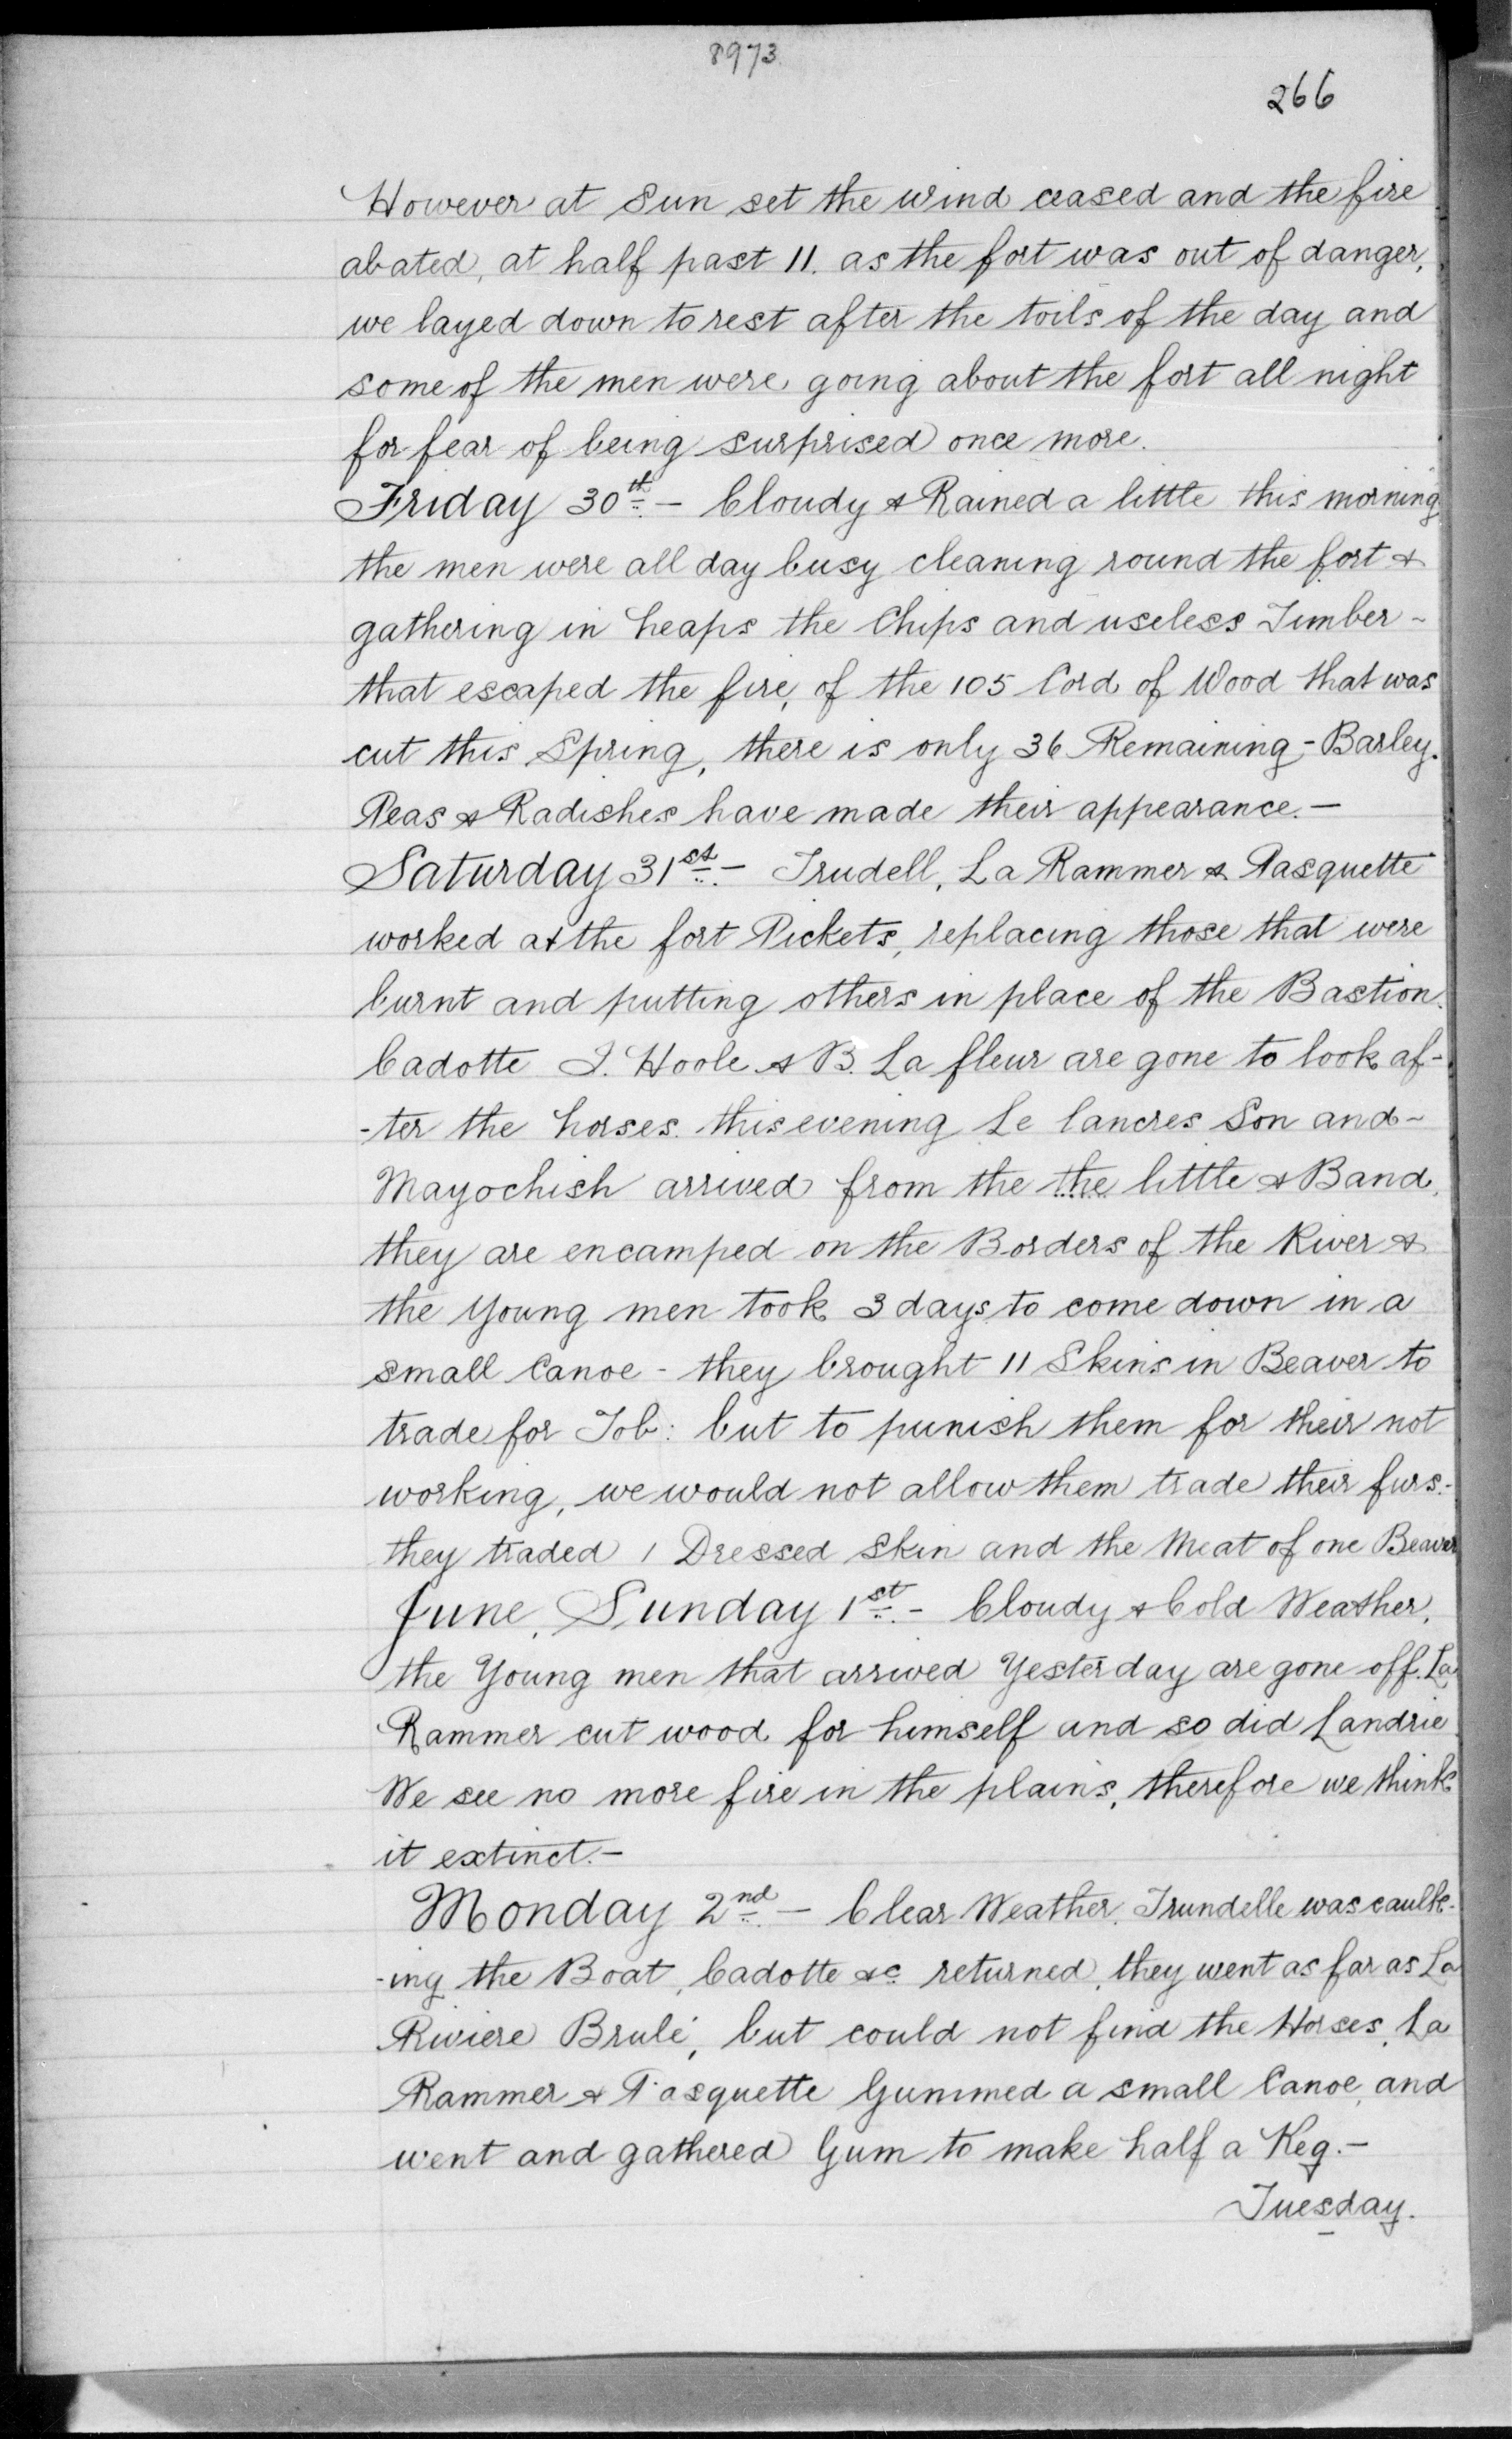 8973
266
However at Sun set the wind ceased and the fire
abated, at half past 11. as the fort was out of danger,
we layed down to rest after the toils of the day and
some of the men were going about the fort all night
for fear of being surprised once more.
Friday 30th. - Cloudy & Rained a little this morning
the men were all day busy cleaning round the fort &
gathering in heaps the Chips and useless Timber -
that escaped the fire, of the 105 Cord of Wood that was
cut this Spring, there is only 36 Remaining - Barley.
Peas & Radishes have made their appearance. -
Saturday 31st. - Trudell, La Rammer & Pasquette
worked at the fort Pickets, replacing those that were
burnt and putting others in place of the Bastion.
Cadotte J. Hoole & B. La fleur are gone to look af-
-ter the horses. this evening Le lancres Son and -
Mayochish arrived from the the little & Band,
they are encamped on the Borders of the River &
the Young men took 3 days to come down in a
small Canoe - they brought 11 Skins in Beaver to
trade for Tob: but to punish them for their not
working, we would not allow them trade their furs. -
they traded 1 Dressed Skin and the Meat of one Beaver
June, Sunday 1st. - Cloudy & Cold Weather,
the Young men that arrived Yesterday are gone off. La
Rammer cut wood for himself and so did Landrie
We see no more fire in the plains, therefore we think
it extinct. -
Monday 2nd. - Clear Weather. Trundelle was caulk-
-ing the Boat, Cadotte &c returned, they went as far as La
Riviere Brulé, but could not find the Horses, La
Rammer & Pasquette Gummed a small Canoe, and
went and gathered Gum to make half a Keg. -
Tuesday.